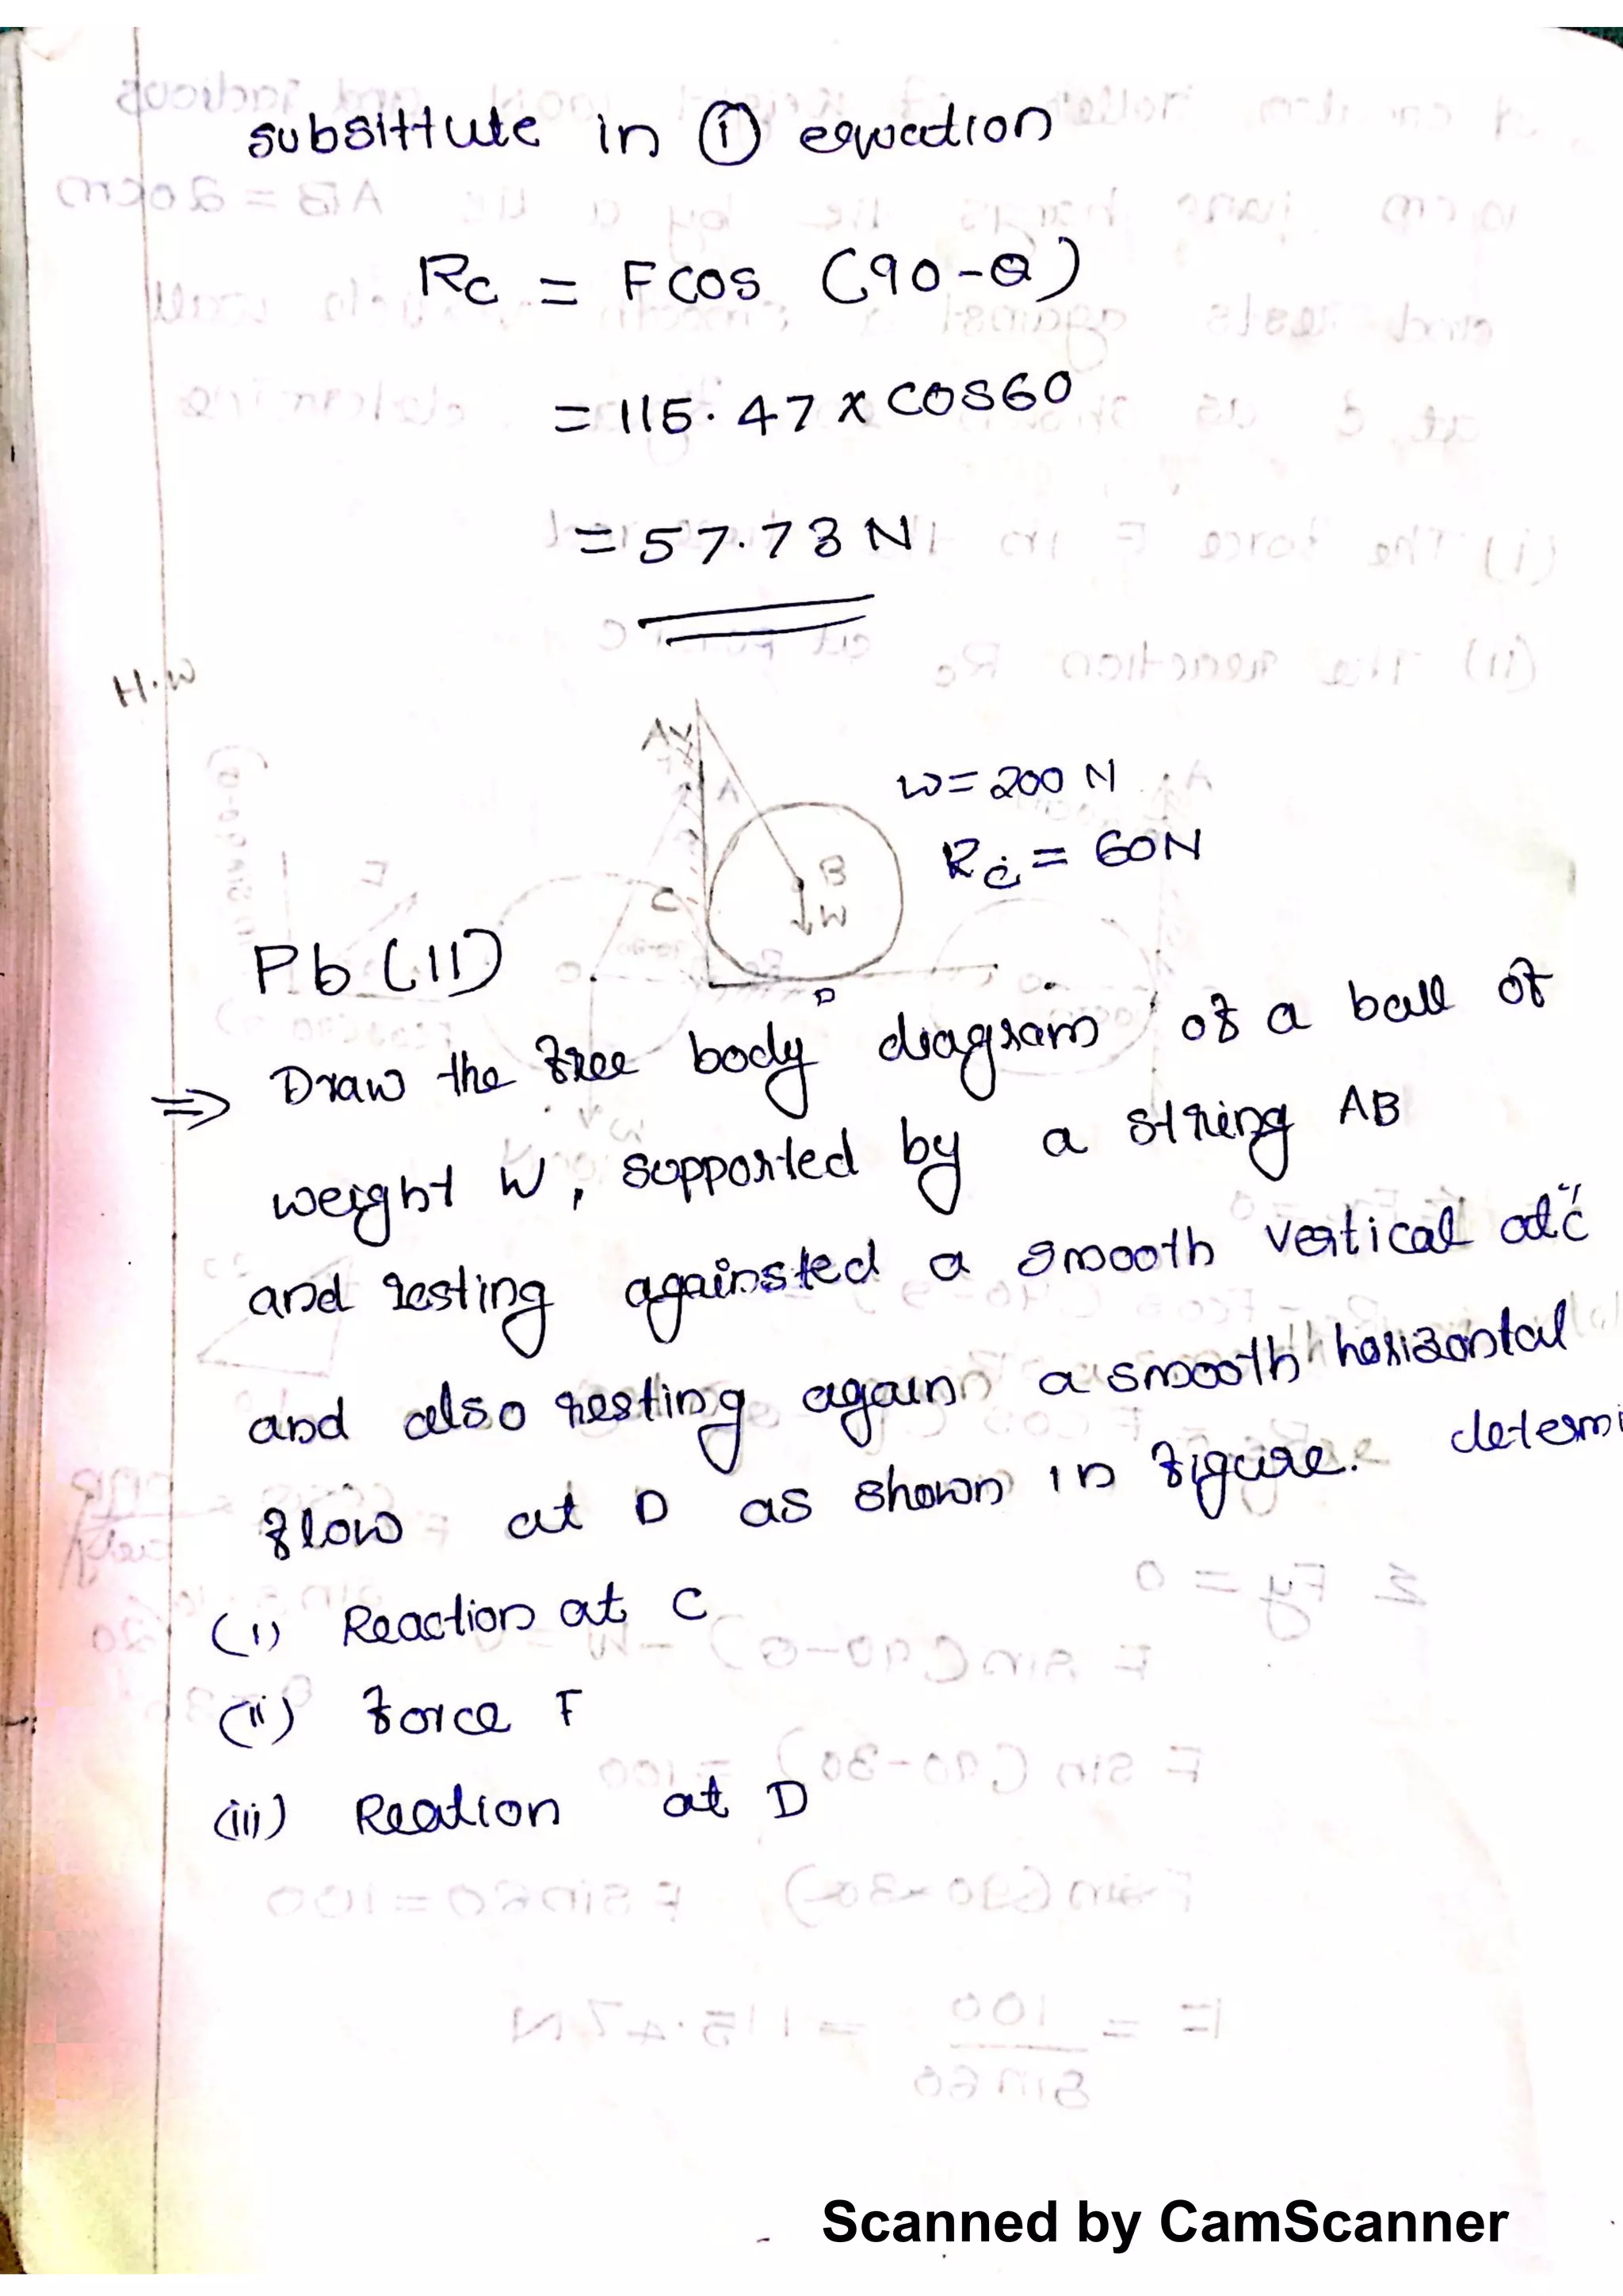 subsittute in ① equation
Rc = F cos (90-θ)
= 115.47 x cos60
= 57.73 N
H.W
A
A
B
C
W
D
W = 200 N
Rc = 60N
Pb (11)
⇒ Draw the free body diagram of a ball of
weight W, supported by a string AB
and resting againsted a smooth vertical at "c
and also resting again a smooth horizontal
flow at D as shown in figure. determi
(i) Reaction at C
(ii) force F
(iii) Reation at D
Scanned by CamScanner